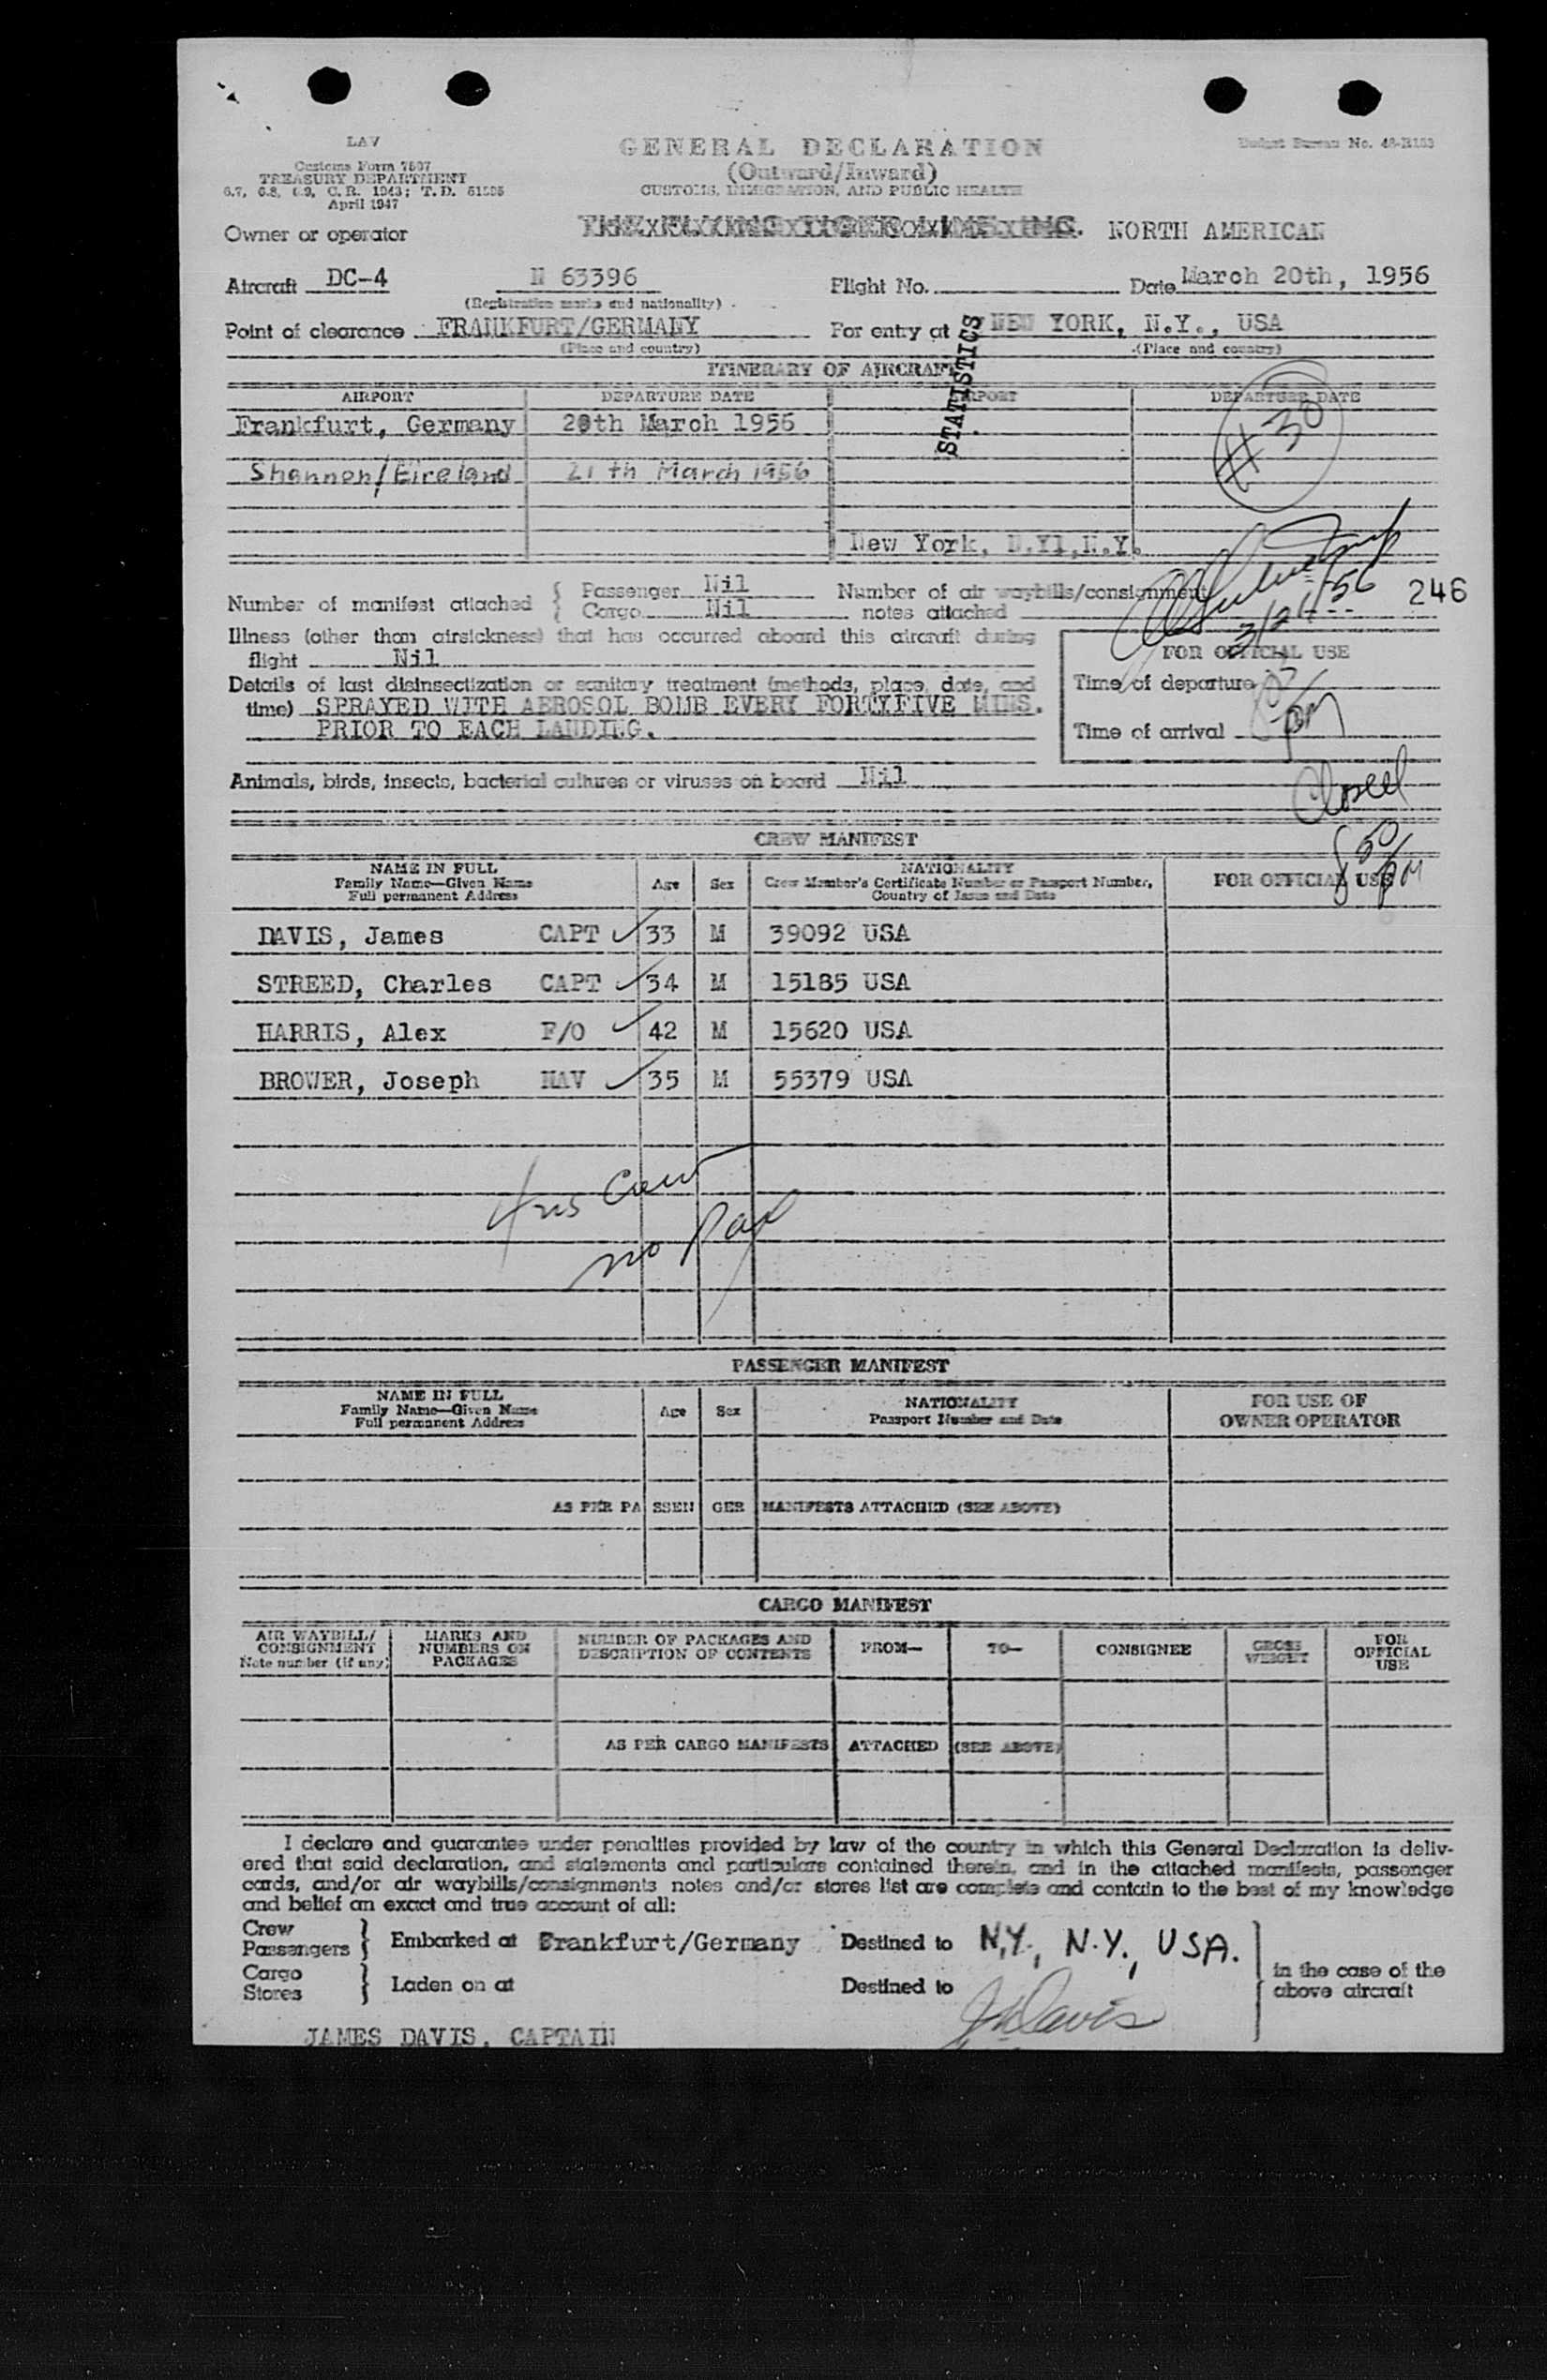 LAV
Customs Form 7507
TREASURY DEPARTMENT
6.7, 6.8, 6.9, C.R. 1943; T.D. 51595
April 1947
GENERAL DECLARATION
(Outward/Inward)
CUSTOMS, IMMIGRATION, AND PUBLIC HEALTH
Budget Bureau No. 48-R153
Owner or operator THE FLYING TIGER LINE INC. NORTH AMERICAN
Aircraft DC-4 N 63396 Flight No. Date March 20th, 1956
(Registration marks and nationality)
Point of clearance FRANKFURT/GERMANY For entry at NEW YORK, N.Y., USA
(Place and country) (Place and country)
STATISTICS
ITINERARY OF AIRCRAFT
AIRPORT DEPARTURE DATE AIRPORT DEPARTURE DATE
Frankfurt, Germany 20th March 1956
#30
Shannon/Eireland 21th March 1956
New York, N.Y1,N.Y.
Number of manifest attached { Passenger Nil Number of air waybills/consignment
Cargo Nil notes attached
3/21/56
246
Illness (other than airsickness) that has occurred aboard this aircraft during
flight Nil
Details of last disinsectization or sanitary treatment (methods, place, date, and
time) SPRAYED WITH AEROSOL BOMB EVERY FORTYFIVE MINS.
PRIOR TO EACH LANDING.
FOR OFFICIAL USE
Time of departure
Time of arrival
PM
Animals, birds, insects, bacterial cultures or viruses on board Nil
Closed
8 50 PM
CREW MANIFEST
NAME IN FULL
Family Name—Given Name
Full permanent Address
Age Sex
NATIONALITY
Crew Member's Certificate Number or Passport Number,
Country of Issue and Date
FOR OFFICIAL USE
DAVIS, James CAPT 33 M 39092 USA
STREED, Charles CAPT 34 M 15185 USA
HARRIS, Alex F/O 42 M 15620 USA
BROWER, Joseph NAV 35 M 55379 USA
4 us Crew
no Pax
PASSENGER MANIFEST
NAME IN FULL
Family Name—Given Name
Full permanent Address
Age Sex
NATIONALITY
Passport Number and Date
FOR USE OF
OWNER OPERATOR
AS PER PASSENGER MANIFESTS ATTACHED (SEE ABOVE)
CARGO MANIFEST
AIR WAYBILL/
CONSIGNMENT
Note number (if any)
MARKS AND
NUMBERS ON
PACKAGES
NUMBER OF PACKAGES AND
DESCRIPTION OF CONTENTS
FROM— TO— CONSIGNEE
GROSS
WEIGHT
FOR
OFFICIAL
USE
AS PER CARGO MANIFESTS ATTACHED (SEE ABOVE)
I declare and guarantee under penalties provided by law of the country in which this General Declaration is deliv-
ered that said declaration, and statements and particulars contained therein, and in the attached manifests, passenger
cards, and/or air waybills/consignments notes and/or stores list are complete and contain to the best of my knowledge
and belief an exact and true account of all:
Crew
Passengers } Embarked at Frankfurt/Germany Destined to N.Y., N.Y., USA.
Cargo
Stores } Laden on at Destined to
in the case of the
above aircraft
J Davis
JAMES DAVIS, CAPTAIN